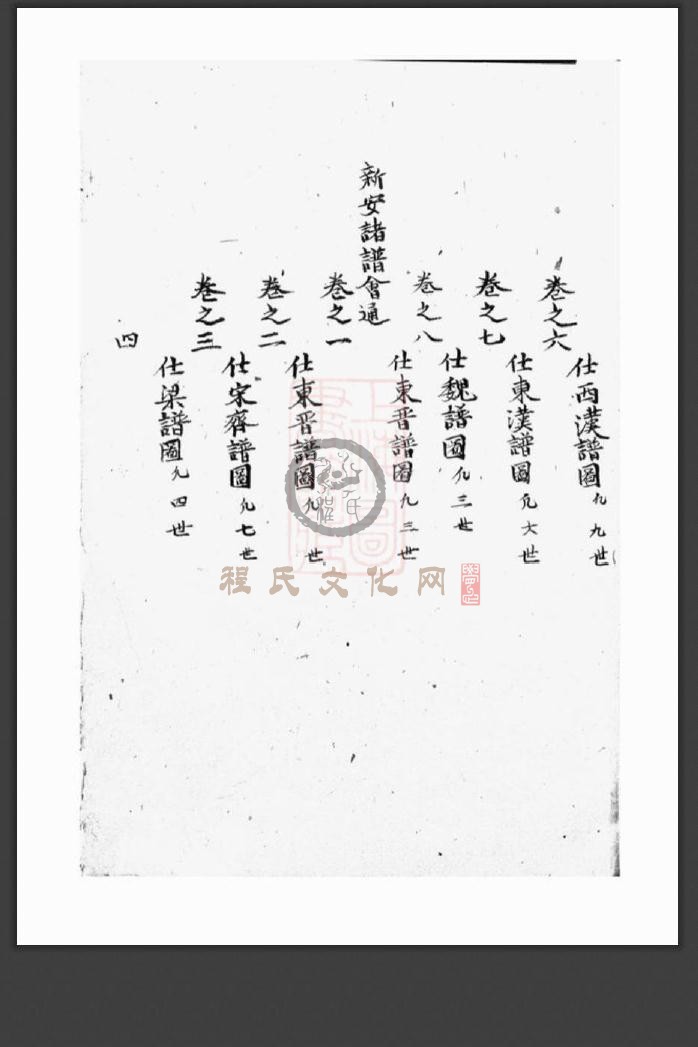 卷之六
仕西漢譜圖凡九世
卷之七
仕東漢譜圖凡六世
卷之八
仕魏譜圖凡三世
仕東晉譜圖凡三世
新安諸譜會通
卷之一
仕東晉譜圖凡 世
卷之二
仕宋齊譜圖凡七世
卷之三
仕梁譜圖凡四世
四
程氏文化网